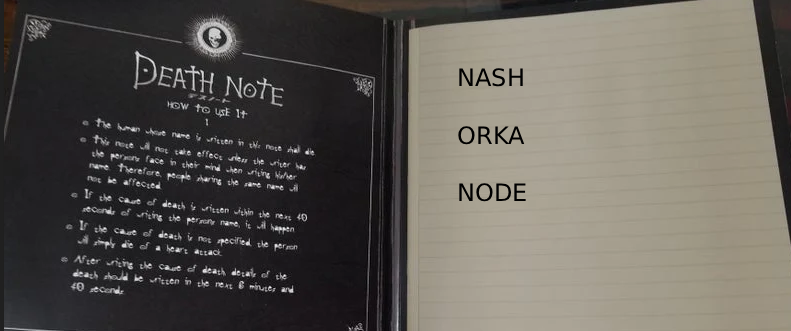 DEATH NOTE
デスノート
HOW TO USE IT
1
The human whose name is written in this note shall die
This note will not take effect unless the writer has
the persons face in their mind when writing his/her
name. Therefore, people sharing the same name will
not be affected.
If the cause of death is written within the next 40
seconds of writing the persons name, it will happen
If the cause of death is not specified, the person
will simply die of a heart attack.
After writing the cause of death details of the
death should be written in the next 6 minutes and
40 seconds
NASH
ORKA
NODE